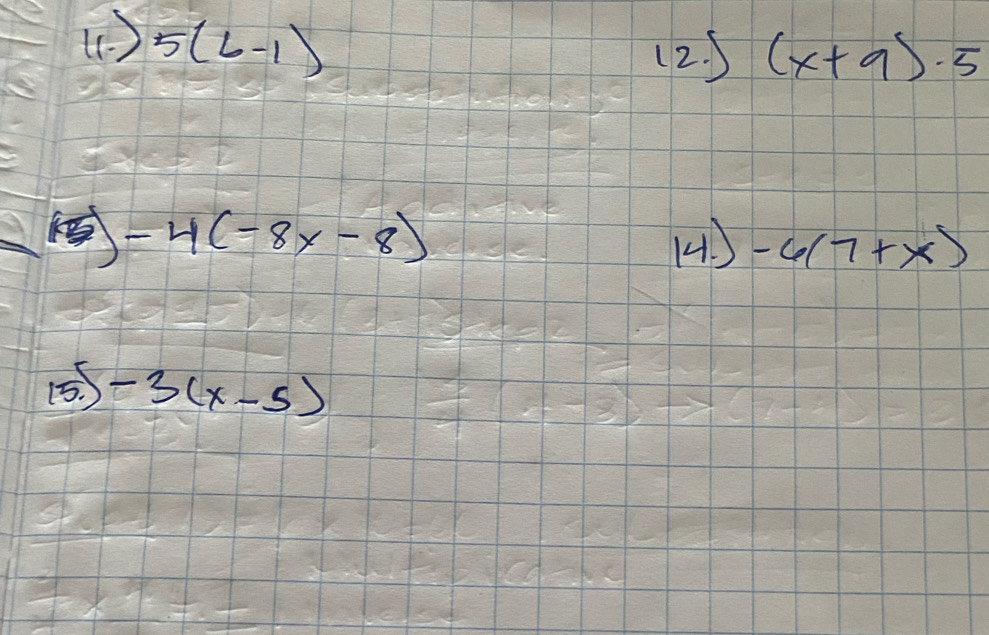 11.) 5(b-1)
12.) (x+9)·5
-4(-8x-8)
14.) -6(7+x)
15.) -3(x-5)